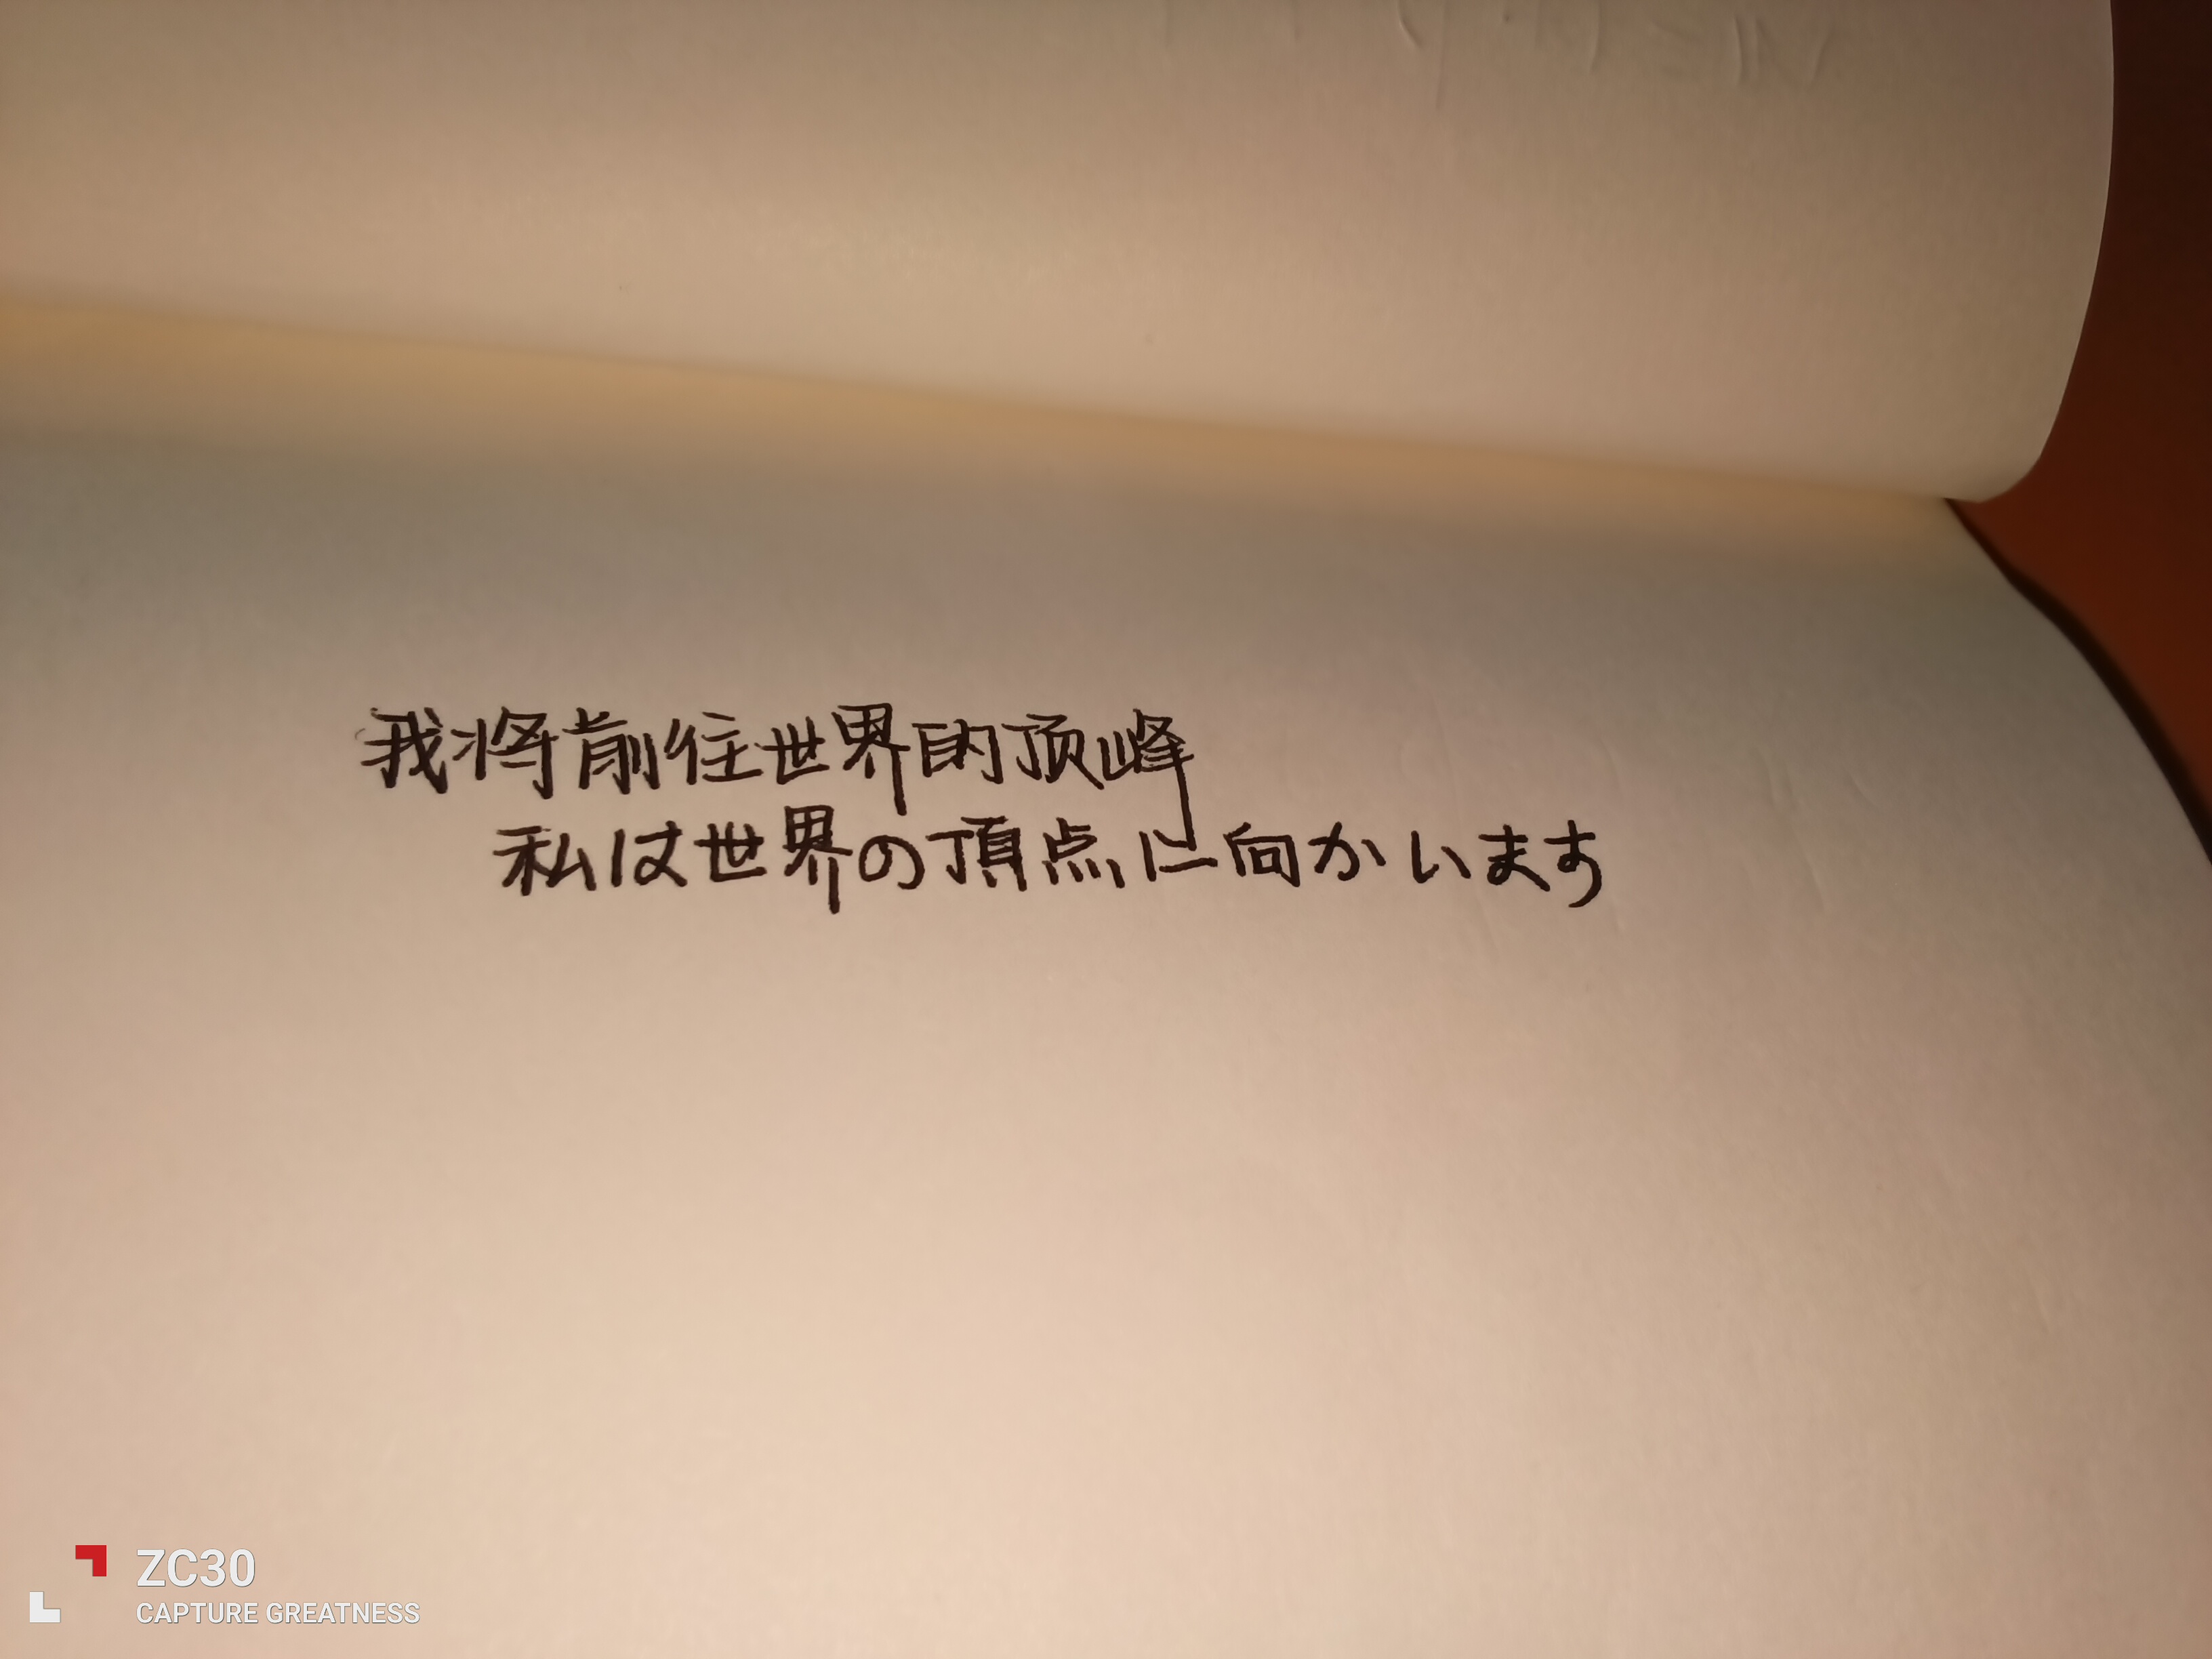 我将前往世界的顶峰
私は世界の頂点に向かいます
ZC30
CAPTURE GREATNESS